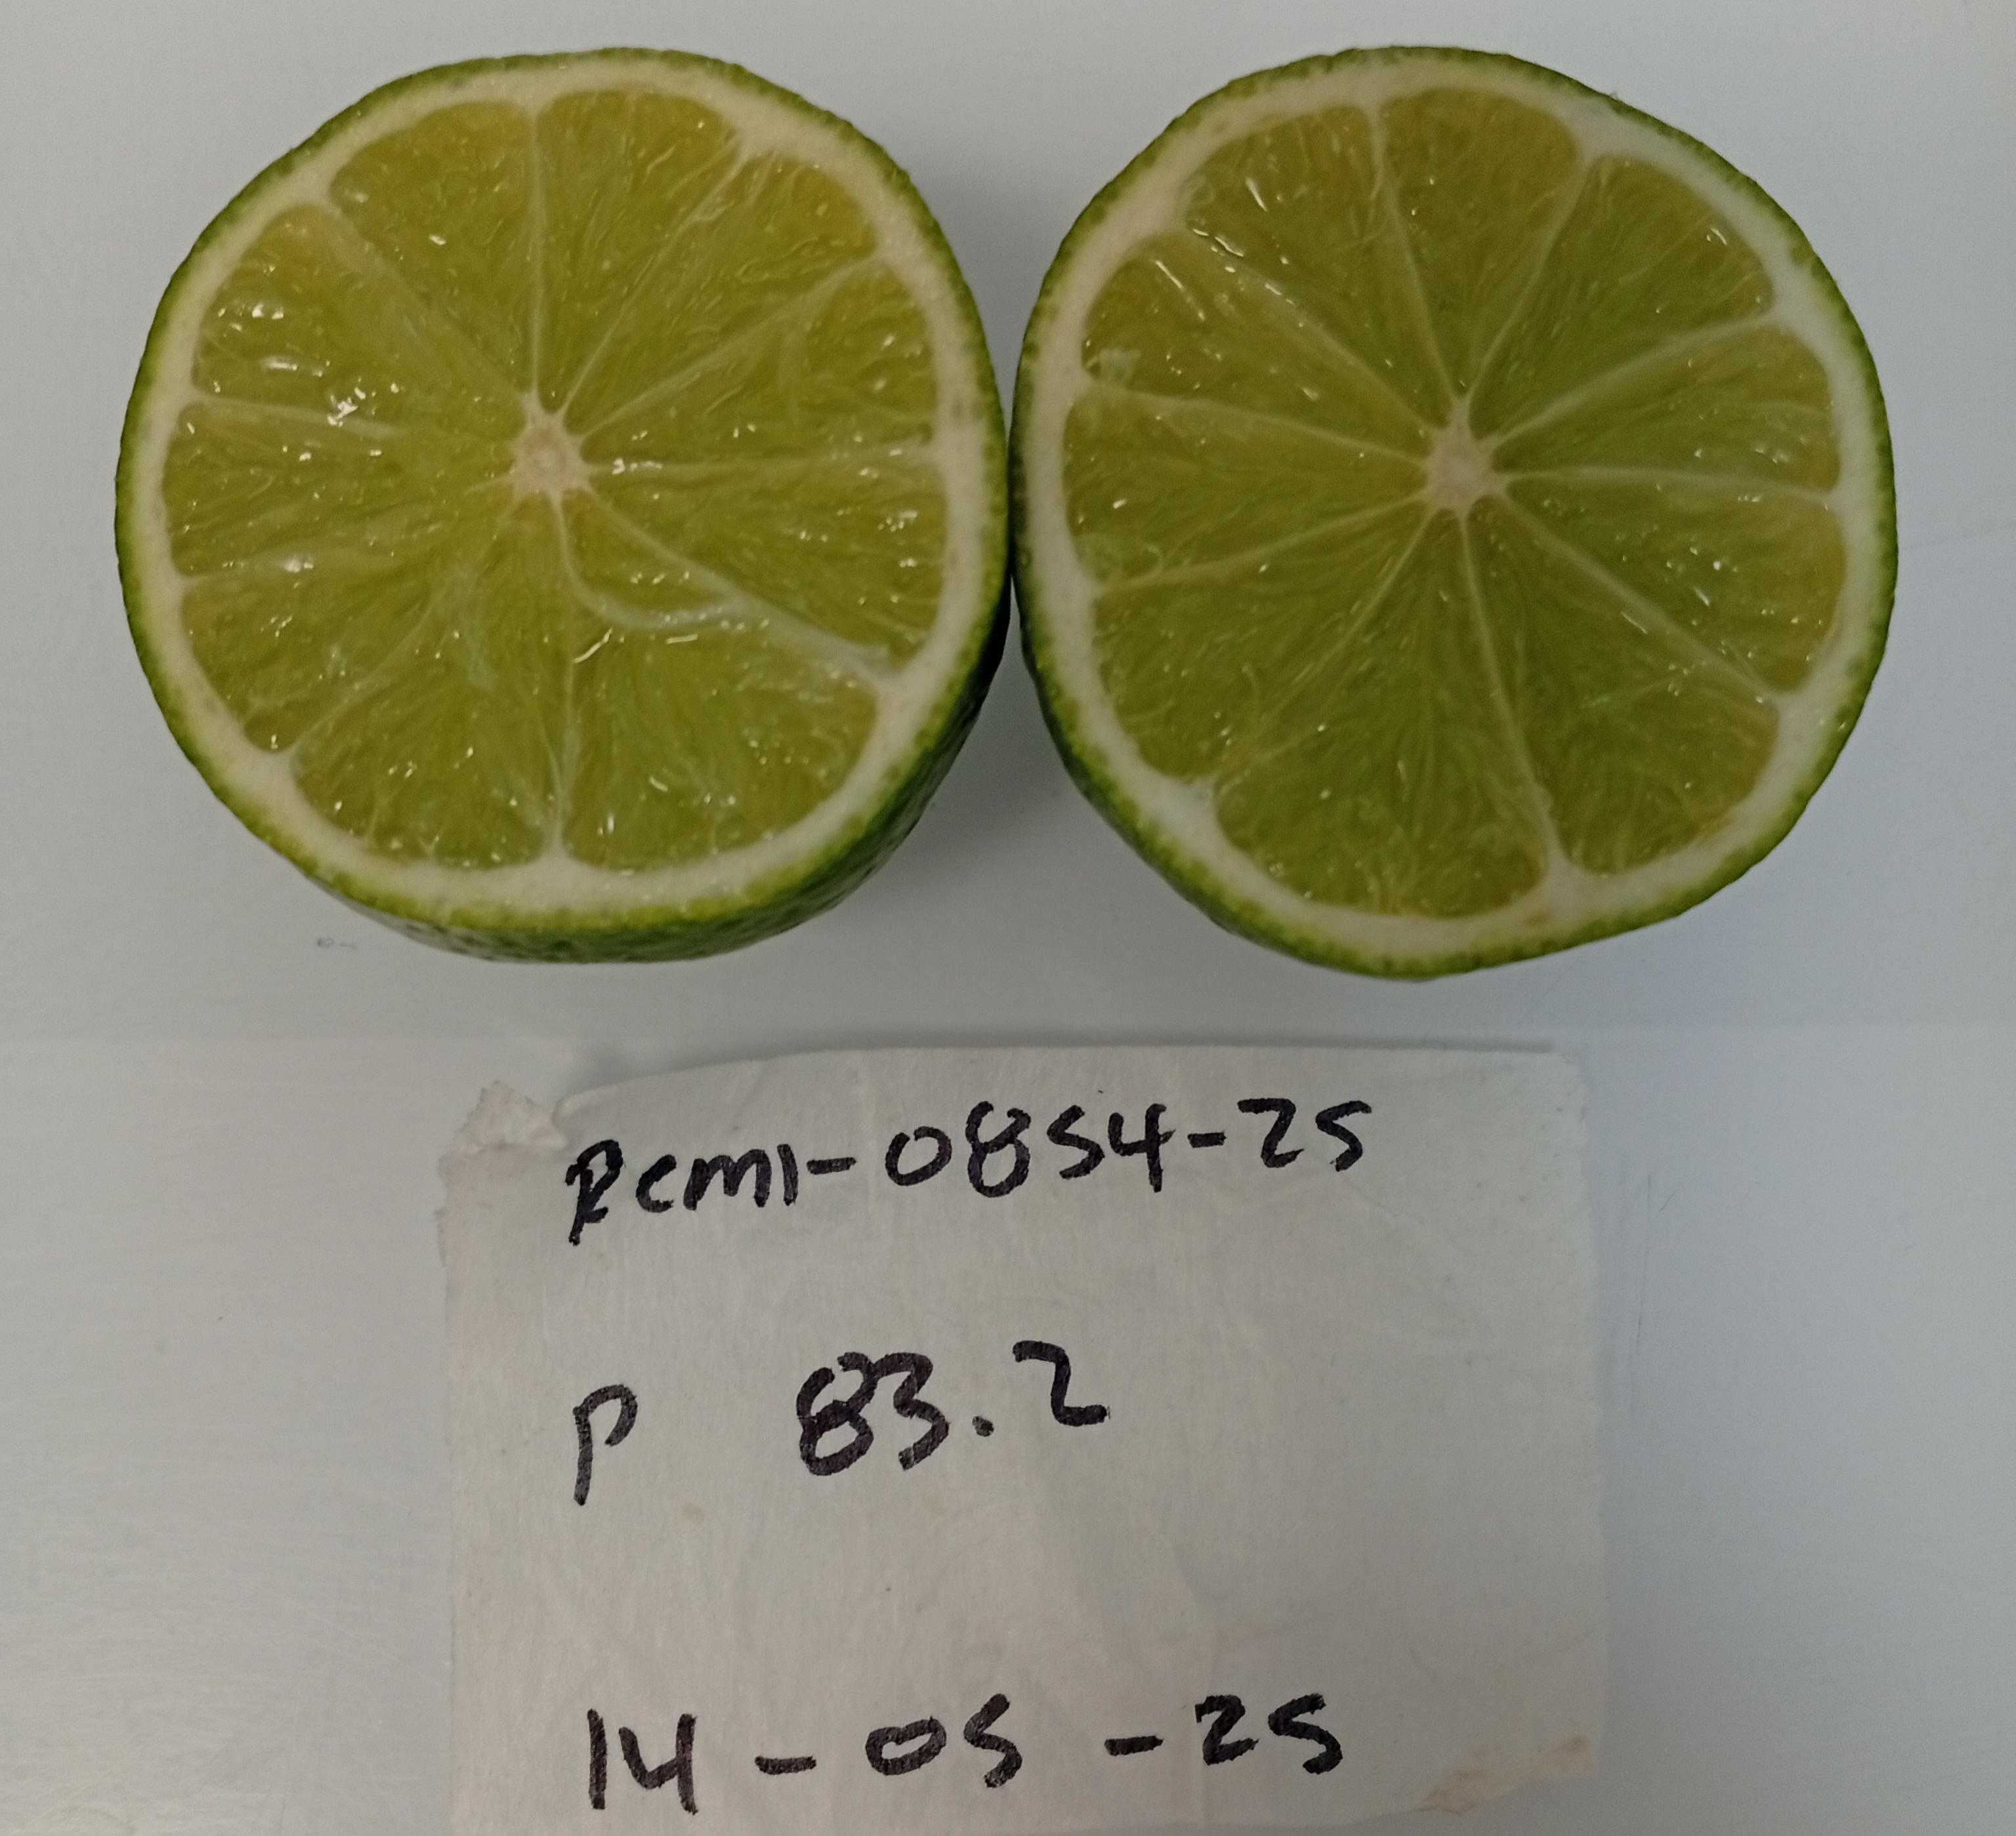 Rcm1-0854-25
P 83.2
14-05-25